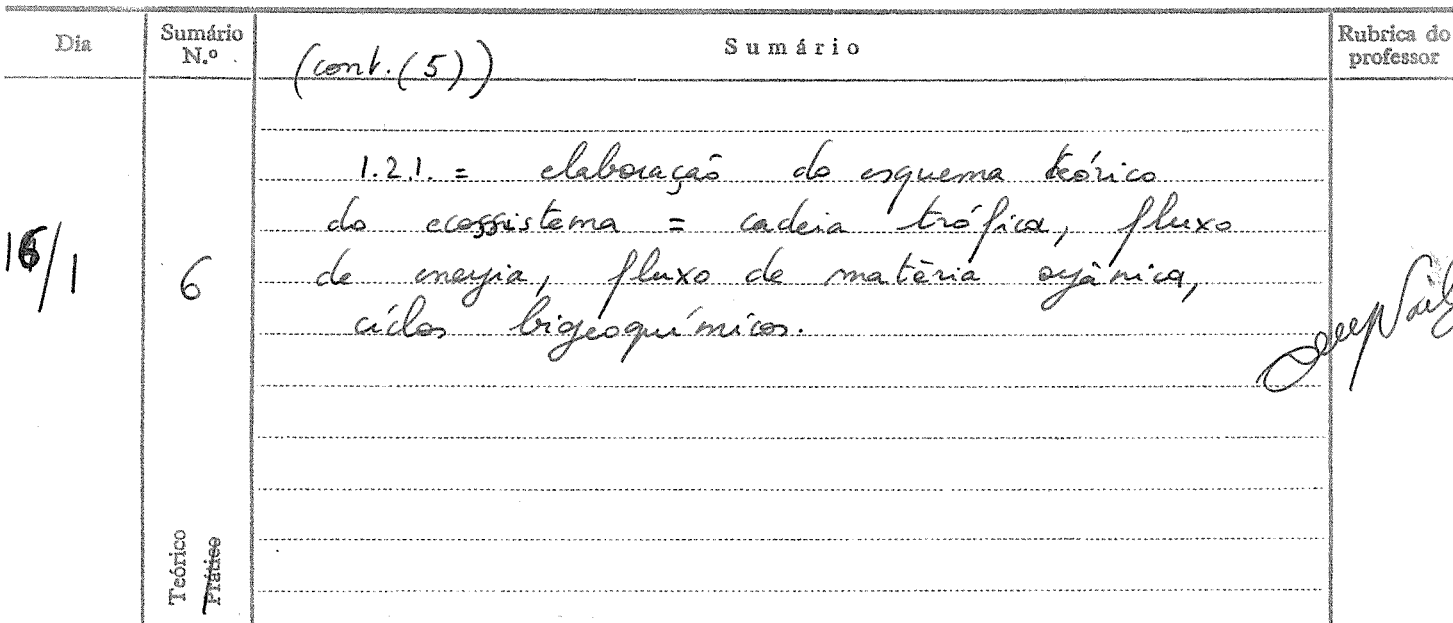 Dia
Sumário N.º
Sumário
Rubrica do professor
(cont. (5))
1.2.1. = elaboração do esquema teórico
do ecossistema = cadeia trófica, fluxo
16/1
6
de energia, fluxo de matéria orgânica,
ciclos biogeoquímicos.
Teórico
Prático